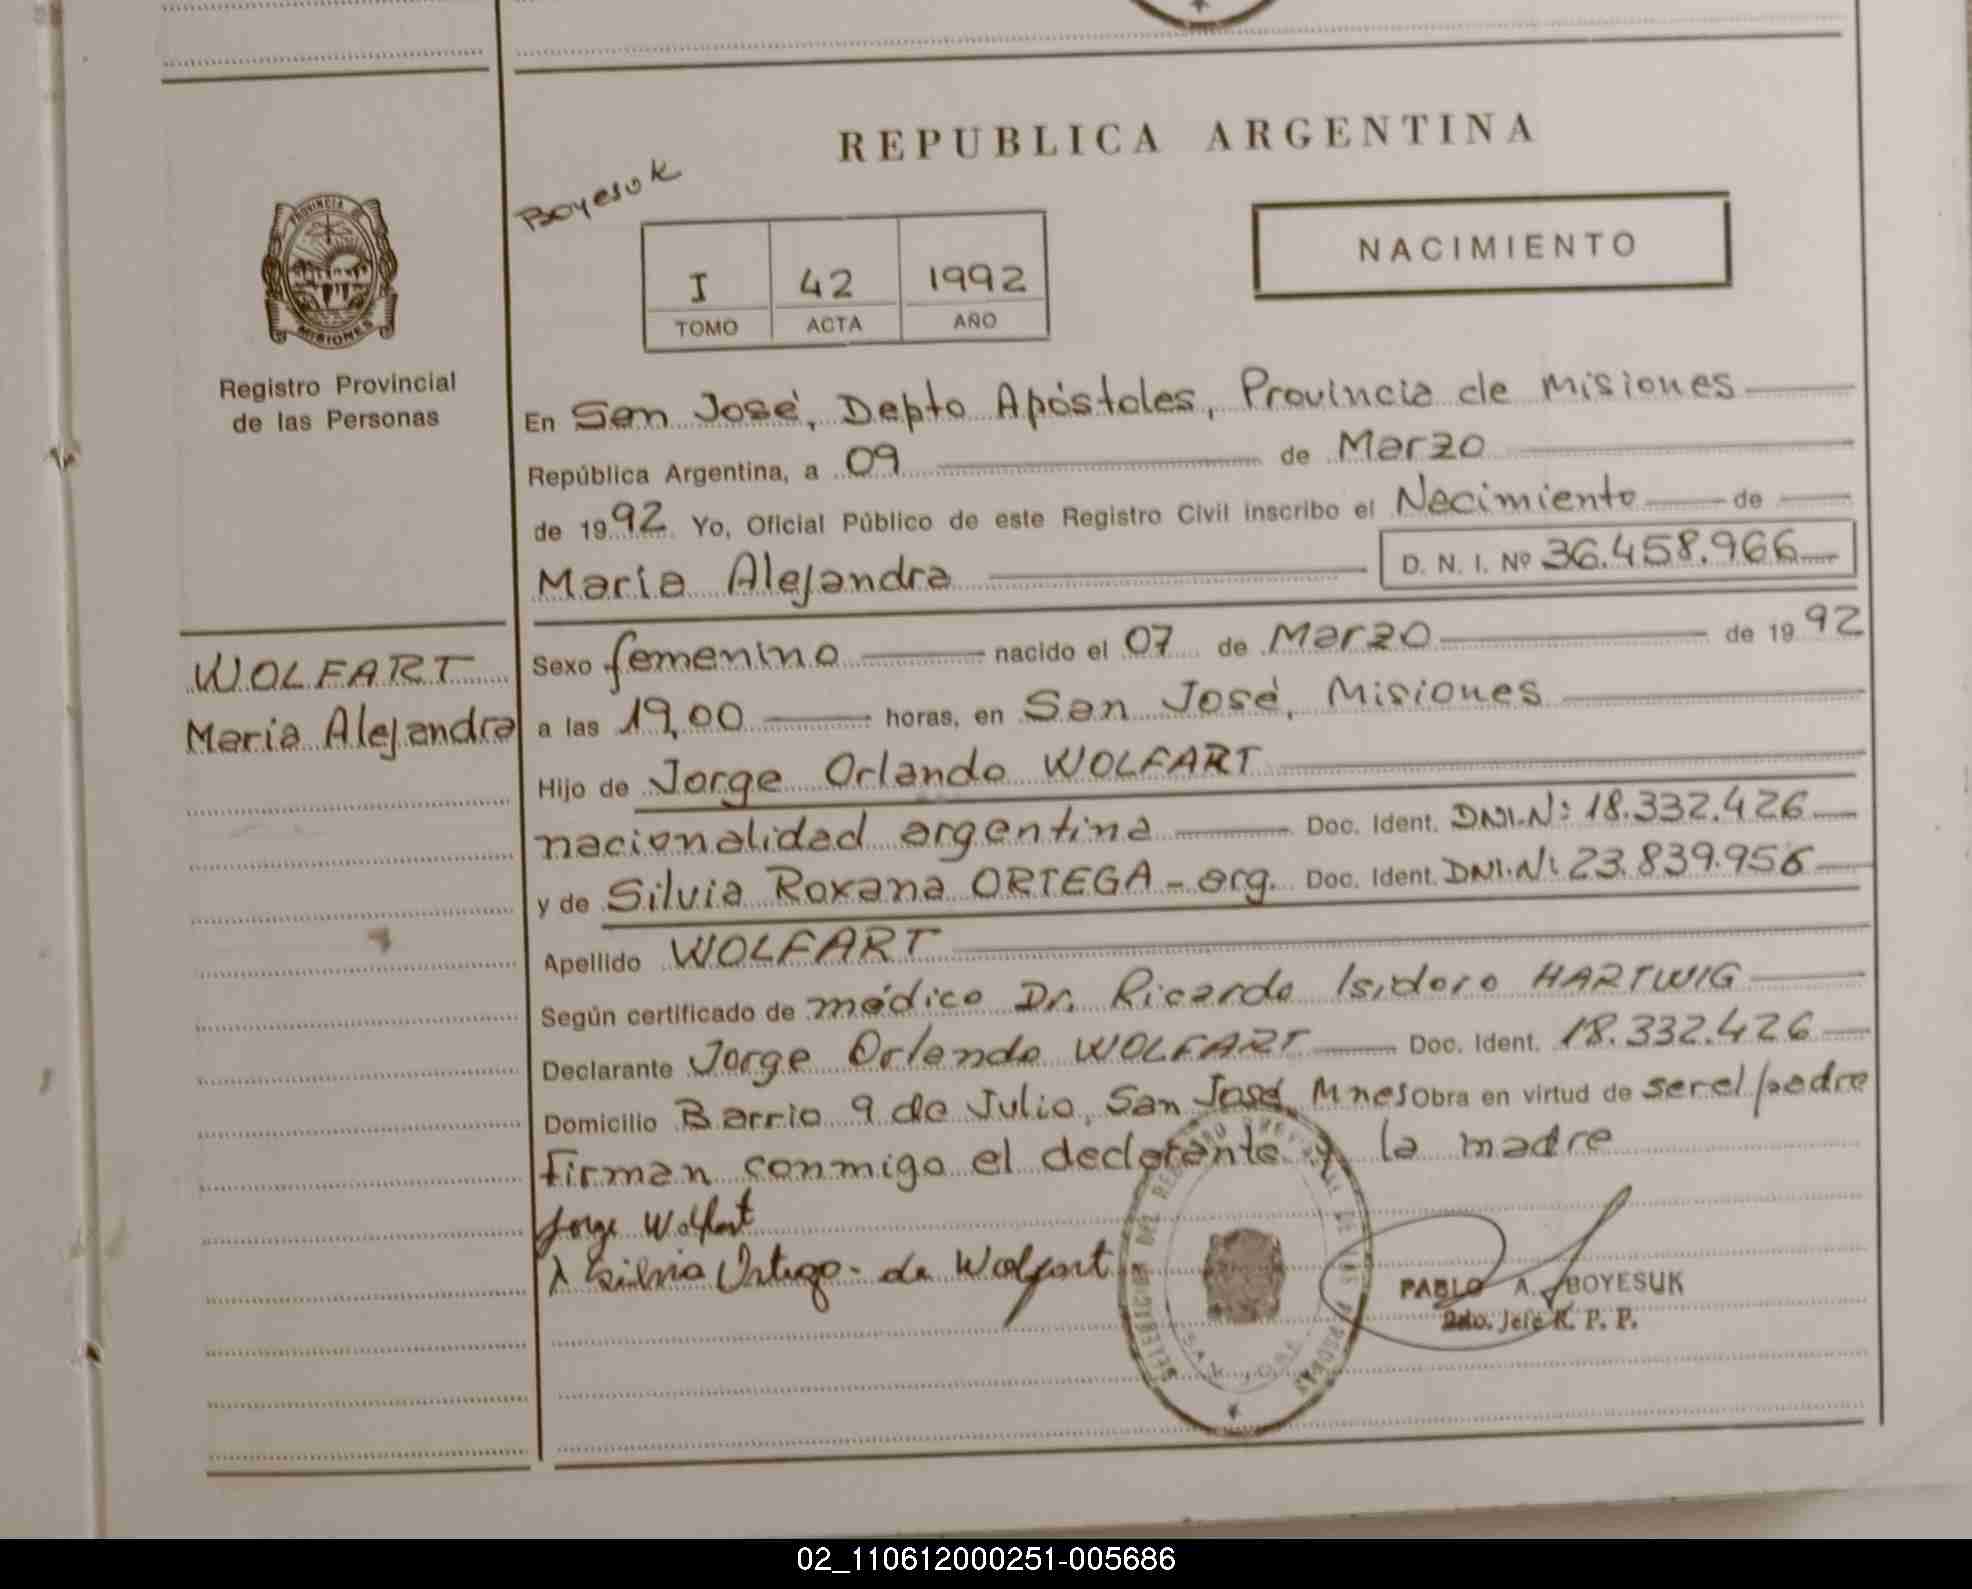 REPUBLICA ARGENTINA
Boyesuk
NACIMIENTO
I 42 1992
TOMO ACTA AÑO
PROVINCIA DE
MISIONES
Registro Provincial
de las Personas
En San José, Depto Apóstoles, Provincia de Misiones
República Argentina, a 09 de Marzo
de 1992 Yo, Oficial Público de este Registro Civil inscribo el Nacimiento de
Maria Alejandra D. N. I. Nº 36.458.966
WOLFART
Maria Alejandra
Sexo femenino nacido el 07 de Marzo de 1992
a las 19,00 horas, en San José, Misiones
Hijo de Jorge Orlando WOLFART
nacionalidad argentina Doc. Ident. DNI.N: 18.332.426
y de Silvia Roxana ORTEGA - arg. Doc. Ident. DNI.N: 23.839.956
Apellido WOLFART
Según certificado de médico Dr. Ricardo Isidoro HARTWIG
Declarante Jorge Orlando WOLFART Doc. Ident. 18.332.426
Domicilio Barrio 9 de Julio, San José, Mnes Obra en virtud de ser el padre
Firman conmigo el declarante y la madre
Jorge Wolfart
Silvia Ortega - de Wolfart
DELEGACION DEL REGISTRO PROVINCIAL DE LAS PERSONAS
SAN JOSE
PABLO A. BOYESUK
2do. Jefe R. P. P.
02_110612000251-005686